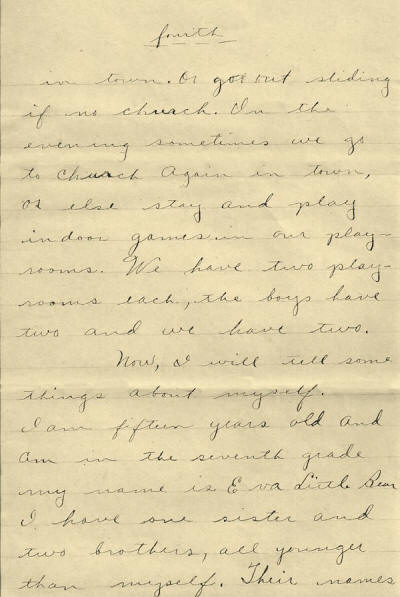 fourth
in town. Or go out sliding
if no church. In the
evening sometimes we go
to church Again in town,
or else stay and play
indoor games in our play-
rooms. We have two play-
rooms each, the boys have
two and we have two.
Now, I will tell some
things about myself.
I am fifteen years old and
am in the seventh grade
my name is Eva Little Bear
I have one sister and
two brothers, all younger
than myself. Their names